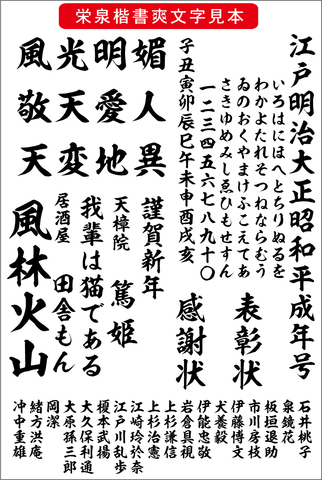 栄泉楷書爽文字見本
江戸明治大正昭和平成年号
いろはにほへとちりぬるを
わかよたれそつねならむう
ゐのおくやまけふこえてあ
さきゆめみしゑひもせすん
一二三四五六七八九十〇
子丑寅卯辰巳午未申酉戌亥
風光明媚
敬天愛人
天変地異
表彰状
感謝状
謹賀新年
天樟院
篤姫
我輩は猫である
居酒屋
田舎もん
風林火山
石井桃子
泉鏡花
板垣退助
市川房枝
伊藤博文
犬養毅
伊能忠敬
岩倉具視
上杉謙信
上杉治憲
江崎玲於奈
江戸川乱歩
榎本武揚
大久保利通
大原孫三郎
岡潔
緒方洪庵
沖中重雄